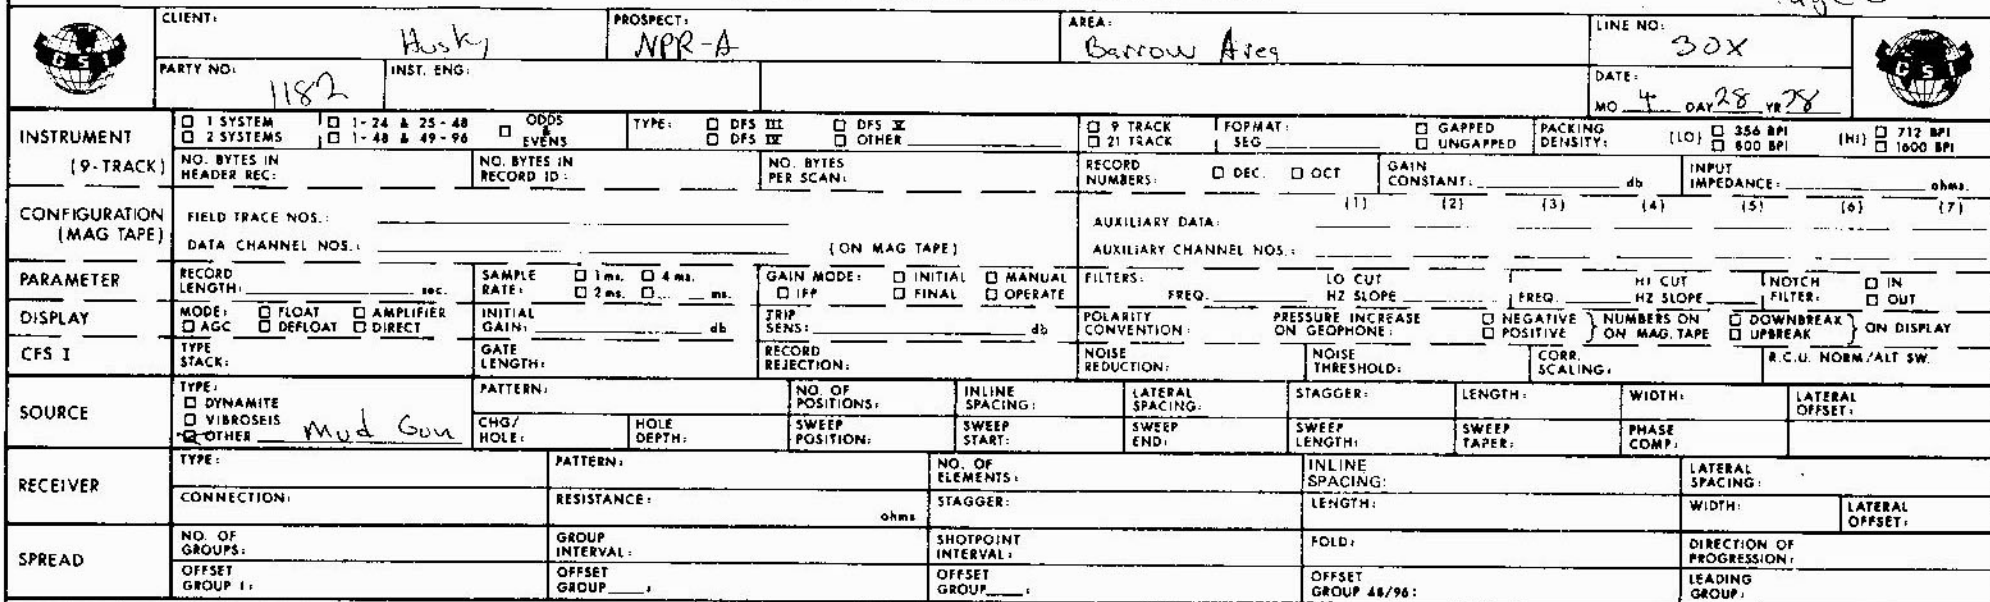 CLIENT: Husky PROSPECT: NPR-A AREA: Barrow Area LINE NO: 30X
GSI GSI
PARTY NO: 1182 INST. ENG: DATE: MO 4 DAY 28 YR 78
INSTRUMENT (9-TRACK) □ 1 SYSTEM □ 1-24 & 25-48 □ ODDS & EVENS TYPE: □ DFS III □ DFS V □ 9 TRACK FORMAT: □ GAPPED PACKING DENSITY: (LO) □ 356 BPI (HI) □ 712 BPI
□ 2 SYSTEMS □ 1-48 & 49-96 □ DFS IV □ OTHER □ 21 TRACK SEG □ UNGAPPED □ 800 BPI □ 1600 BPI
NO. BYTES IN HEADER REC: NO. BYTES IN RECORD ID: NO. BYTES PER SCAN: RECORD NUMBERS: □ DEC. □ OCT GAIN CONSTANT: db INPUT IMPEDANCE: ohms.
CONFIGURATION (MAG TAPE) FIELD TRACE NOS.: AUXILIARY DATA: (1) (2) (3) (4) (5) (6) (7)
DATA CHANNEL NOS.: (ON MAG TAPE) AUXILIARY CHANNEL NOS.:
PARAMETER RECORD LENGTH: sec. SAMPLE RATE: □ 1 ms. □ 4 ms. □ 2 ms. □ ms. GAIN MODE: □ INITIAL □ MANUAL □ IFP □ FINAL □ OPERATE FILTERS: FREQ. LO CUT HZ SLOPE FREQ. HI CUT HZ SLOPE NOTCH FILTER: □ IN □ OUT
DISPLAY MODE: □ FLOAT □ AMPLIFIER □ AGC □ DEFLOAT □ DIRECT INITIAL GAIN: db TRIP SENS: db POLARITY CONVENTION: PRESSURE INCREASE ON GEOPHONE: □ NEGATIVE □ POSITIVE } NUMBERS ON MAG. TAPE □ DOWNBREAK □ UPBREAK } ON DISPLAY
CFS I TYPE STACK: GATE LENGTH: RECORD REJECTION: NOISE REDUCTION: NOISE THRESHOLD: CORR. SCALING: R.C.U. NORM/ALT SW.
SOURCE TYPE: □ DYNAMITE □ VIBROSEIS ☒ OTHER Mud Gun PATTERN: NO. OF POSITIONS: INLINE SPACING: LATERAL SPACING: STAGGER: LENGTH: WIDTH: LATERAL OFFSET:
CHG/HOLE: HOLE DEPTH: SWEEP POSITION: SWEEP START: SWEEP END: SWEEP LENGTH: SWEEP TAPER: PHASE COMP:
RECEIVER TYPE: PATTERN: NO. OF ELEMENTS: INLINE SPACING: LATERAL SPACING:
CONNECTION: RESISTANCE: ohms STAGGER: LENGTH: WIDTH: LATERAL OFFSET:
SPREAD NO. OF GROUPS: GROUP INTERVAL: SHOTPOINT INTERVAL: FOLD: DIRECTION OF PROGRESSION:
OFFSET GROUP 1: OFFSET GROUP____: OFFSET GROUP____: OFFSET GROUP 48/96: LEADING GROUP: